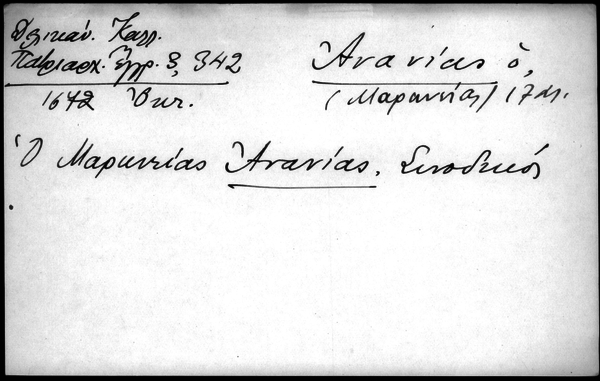 Δελικάν. Καλλ.
Πατριαρχ. Έγγρ. 3, 342
1642 Οκτ.
Ἀνανίας ὁ,
(Μαρωνείας) 17 αι.
Ὁ Μαρωνείας Ἀνανίας. Συνοδικός